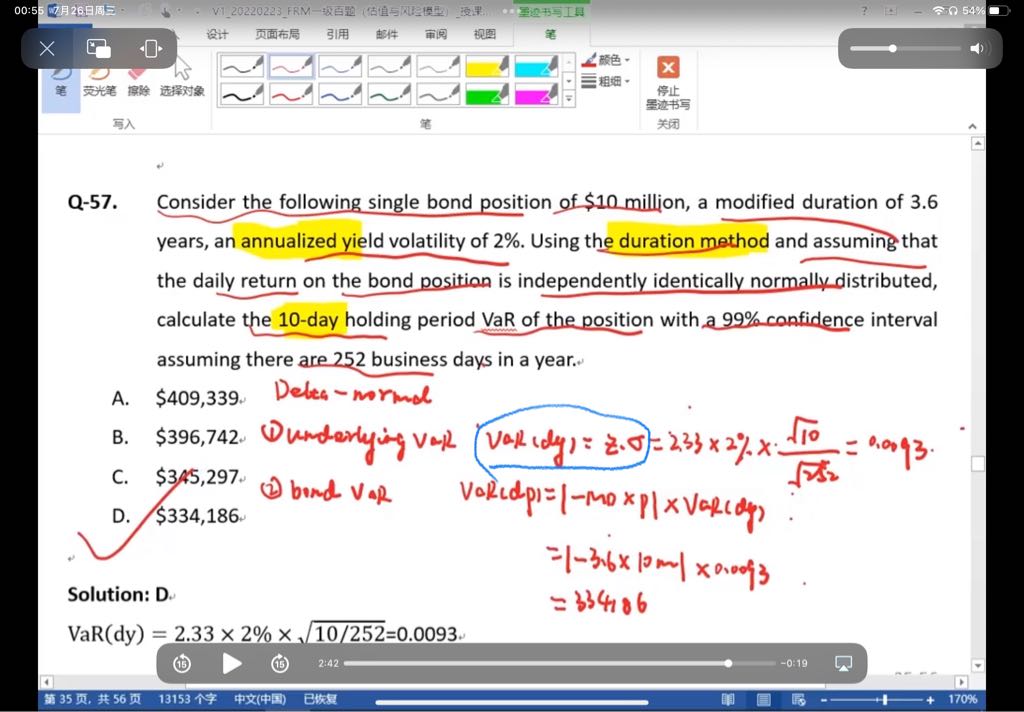 00:55 7月26日周三
V1_20220223_FRM一级百题（估值与风险模型）_授课...
墨迹书写工具
54%
设计 页面布局 引用 邮件 审阅 视图 笔
笔 荧光笔 擦除 选择对象
颜色
粗细
停止
墨迹书写
写入 笔 关闭
Q-57. Consider the following single bond position of $10 million, a modified duration of 3.6
years, an annualized yield volatility of 2%. Using the duration method and assuming that
the daily return on the bond position is independently identically normally distributed,
calculate the 10-day holding period VaR of the position with a 99% confidence interval
assuming there are 252 business days in a year.
A. $409,339 Delta-normal
B. $396,742 ①underlying VaR VaR(dy) = z.σ = 2.33 × 2% × √10/√252 = 0.0093.
C. $345,297
D. $334,186
② bond VaR VaR(dp) = |-MD × P| × VaR(dy)
= |-3.6 × 10m| × 0.0093
= 334,186
Solution: D
VaR(dy) = 2.33 × 2% × √10/252=0.0093
15 15 2:42 −0:19
第 35 页，共 56 页 13153 个字 中文(中国) 已恢复 170%